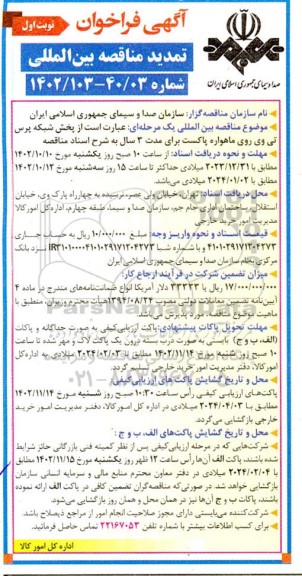 آگهی فراخوان
نوبت اول
تمدید مناقصه بین‌المللی
شماره ۴۰/۰۳-۱۴۰۲/۱۰۳
صدا و سیمای جمهوری اسلامی ایران
نام سازمان مناقصه‌گزار: سازمان صدا و سیمای جمهوری اسلامی ایران
موضوع مناقصه بین المللی یک مرحله‌ای: عبارت است از پخش شبکه پرس
تی وی روی ماهواره پاکست برای مدت ۳ سال به شرح اسناد مناقصه
مهلت و نحوه دریافت اسناد: از ساعت ۱۰ صبح روز یکشنبه مورخ ۱۴۰۲/۱۰/۱۰
مطابق با ۲۰۲۳/۱۲/۳۱ میلادی حداکثر تا ساعت ۱۵ روز سه‌شنبه مورخ ۱۴۰۲/۱۰/۱۲
مطابق با ۲۰۲۴/۰۱/۰۲ میلادی می‌باشد.
محل دریافت اسناد: تهران، خیابان ولی عصر، نرسیده به چهارراه پارک وی، خیابان
استقلال، ساختمان اداری جام جم، سازمان صدا و سیما، طبقه چهارم، اداره کل امور کالا
مدیریت امور خرید خارجی
قیمت اسناد و نحوه واریز وجه: مبلغ ۱۰/۰۰۰/۰۰۰ ریال به حساب جاری
۴۱۰۱۰۲۹۱۷۱۲۰۴۲۷۳ و یا شماره شبا IR۳۱۰۱۰۰۰۰۴۱۰۱۰۲۹۱۷۱۲۰۴۲۷۳ نزد بانک
مرکزی بنام سازمان صدا و سیمای جمهوری اسلامی ایران
میزان تضمین شرکت در فرآیند ارجاع کار:
۱۷/۰۰۰/۰۰۰/۰۰۰ ریال یا ۳۳۳۳۳ دلار آمریکا انواع ضمانت‌نامه‌های مندرج در ماده ۴
آیین‌نامه تضمین معاملات دولتی مصوب ۱۳۹۴/۰۸/۲۴ هیأت محترم وزیران، منطبق با
ماهیت موضوع مناقصه مورد پذیرش می‌باشد.
مهلت تحویل پاکات پیشنهادی: پاکت ارزیابی کیفی به صورت جداگانه و پاکات
(الف، ب و ج) بایستی به صورت درب بسته درون یک پاکت لاک و مهر شده تا ساعت
۱۰ صبح روز شنبه مورخ ۱۴۰۲/۱۱/۱۴ مطابق با ۲۰۲۴/۰۲/۰۳ میلادی به اداره کل
امور کالا، دفتر مدیریت امور خرید خارجی تسلیم گردد.
محل و تاریخ گشایش پاکت های ارزیابی کیفی:
پاکت‌های ارزیابی کیفی رأس ساعت ۱۰:۳۰ صبح روز شنبه مورخ ۱۴۰۲/۱۱/۱۴
مطابق با ۲۰۲۴/۰۲/۰۳ میلادی در اداره کل امور کالا، دفتر مدیریت امور خرید
خارجی بازگشایی می‌گردد.
محل و تاریخ گشایش پاکت‌های الف، ب و ج:
شرکت‌هایی که در مرحله ارزیابی کیفی پس از نظر کمیته فنی بازرگانی حائز شرایط
شده باشند، پاکت الف آن‌ها رأس ساعت ۱۲ ظهر روز یکشنبه مورخ ۱۴۰۲/۱۱/۱۵ مطابق
با ۲۰۲۴/۰۲/۰۴ میلادی در دفتر معاون محترم منابع مالی و سرمایه انسانی سازمان
بازگشایی خواهد شد. در صورتی‌که مناقصه‌گران تضمین کافی در پاکت الف ارائه نموده
باشند، پاکات ب و ج آن‌ها نیز در همان محل و همان روز بازگشایی می‌شود.
شرکت کننده می‌بایستی دارای مجوز صلاحیت انجام امور از مراجع ذیصلاح باشد.
برای کسب اطلاعات بیشتر با شماره تلفن ۲۲۱۶۷۰۵۳ تماس حاصل فرمائید.
اداره کل امور کالا